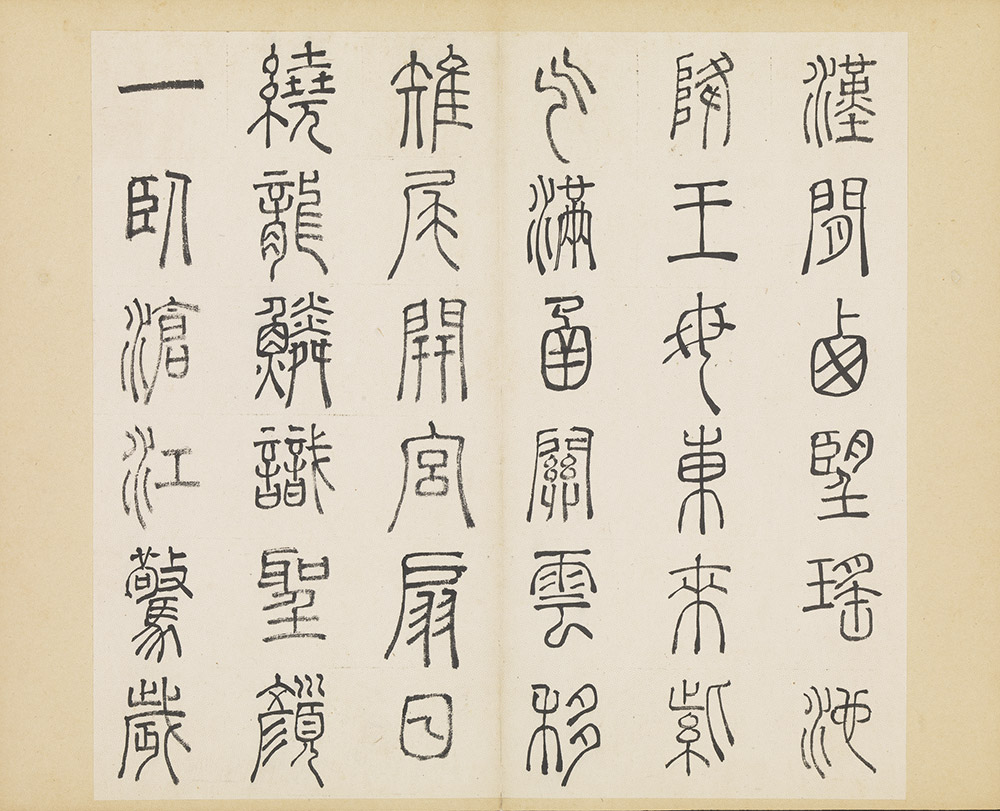 漢間西望瑤池
降王母東來紫
气滿函關雲移
雉尾開宮扇日
繞龍鱗識聖顏
一臥滄江驚歲